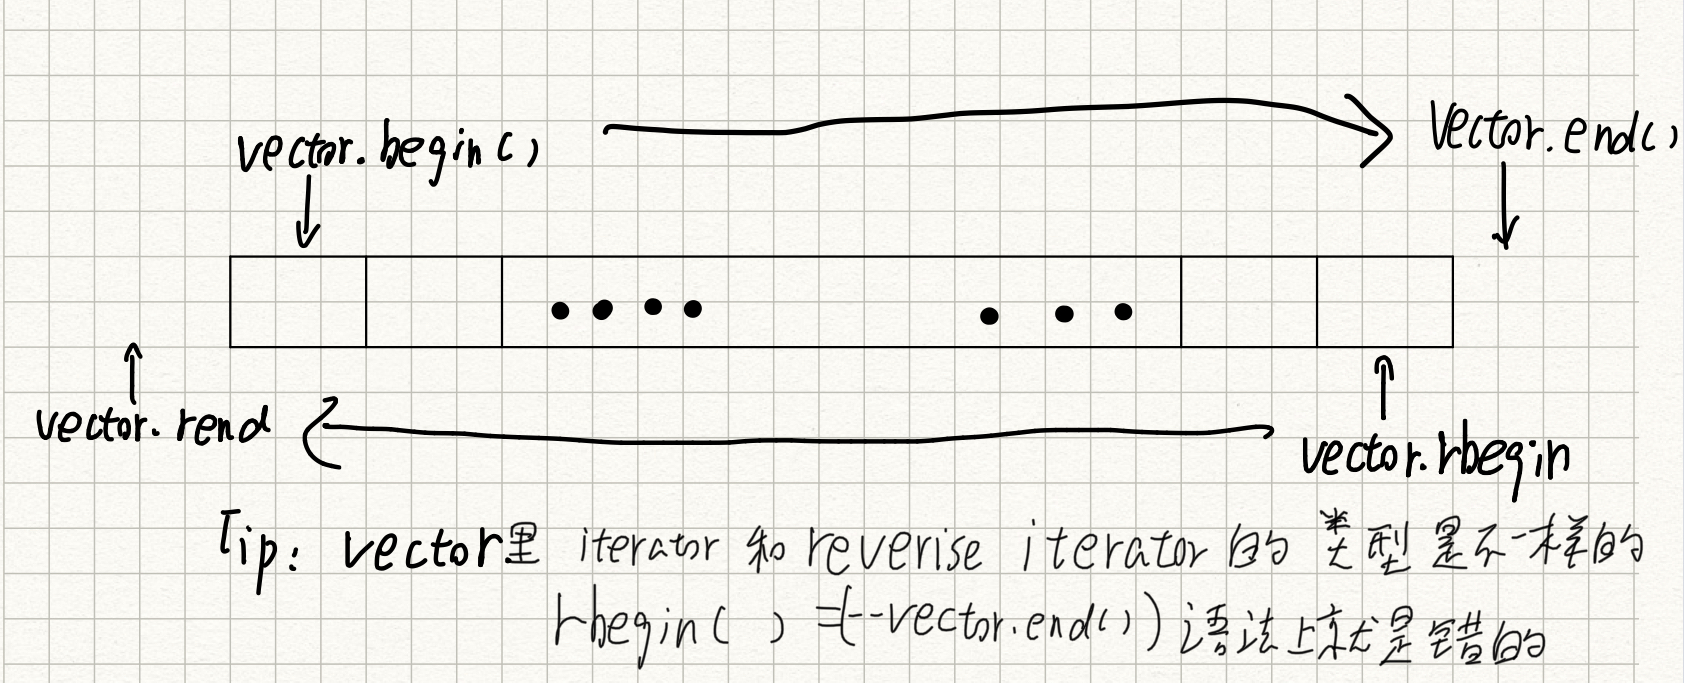 vector.begin()
Vector.end()
vector.rend
vector.rbegin
Tip: vector里 iterator 和 reverise iterator 的 类型是不一样的
rbegin( ) =(--vector.end()) 语法上就是错的